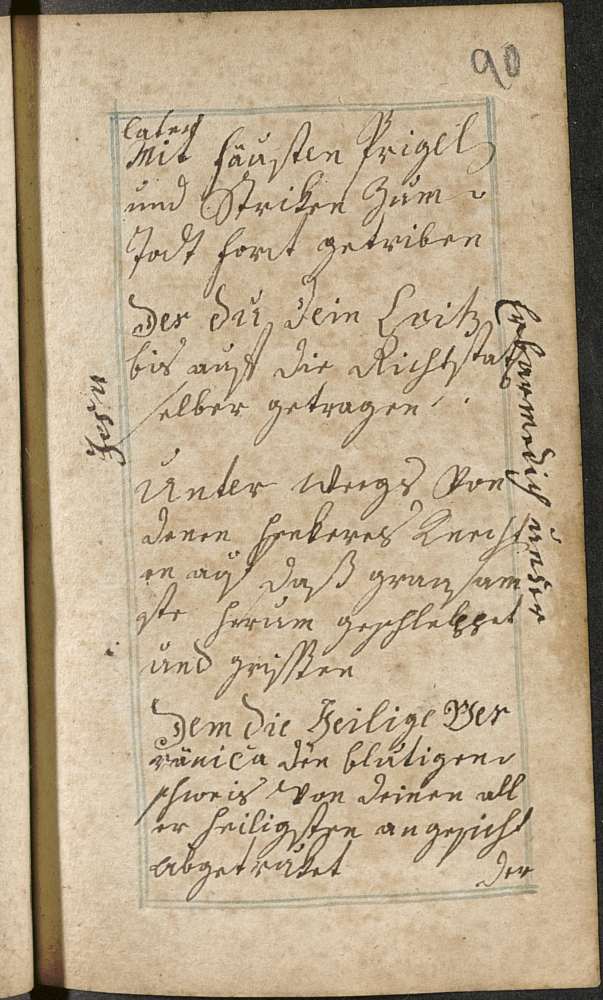 90
later
Mit fäusten Prigel
und Striken Zum
Todt fort getriben
Der du dein Creitz
bis auff die Richtstat
selber getragen
Unter weegs Von
denen henkeres Knecht
en auf daß grausam
ste herum geschleppet
und gerissen
Dem die Heilige Ver
ränica den blutigen
schweis Von deinen all
er heiligsten angesicht
abgetruket
Der
Jesu
Erbarme dich unser